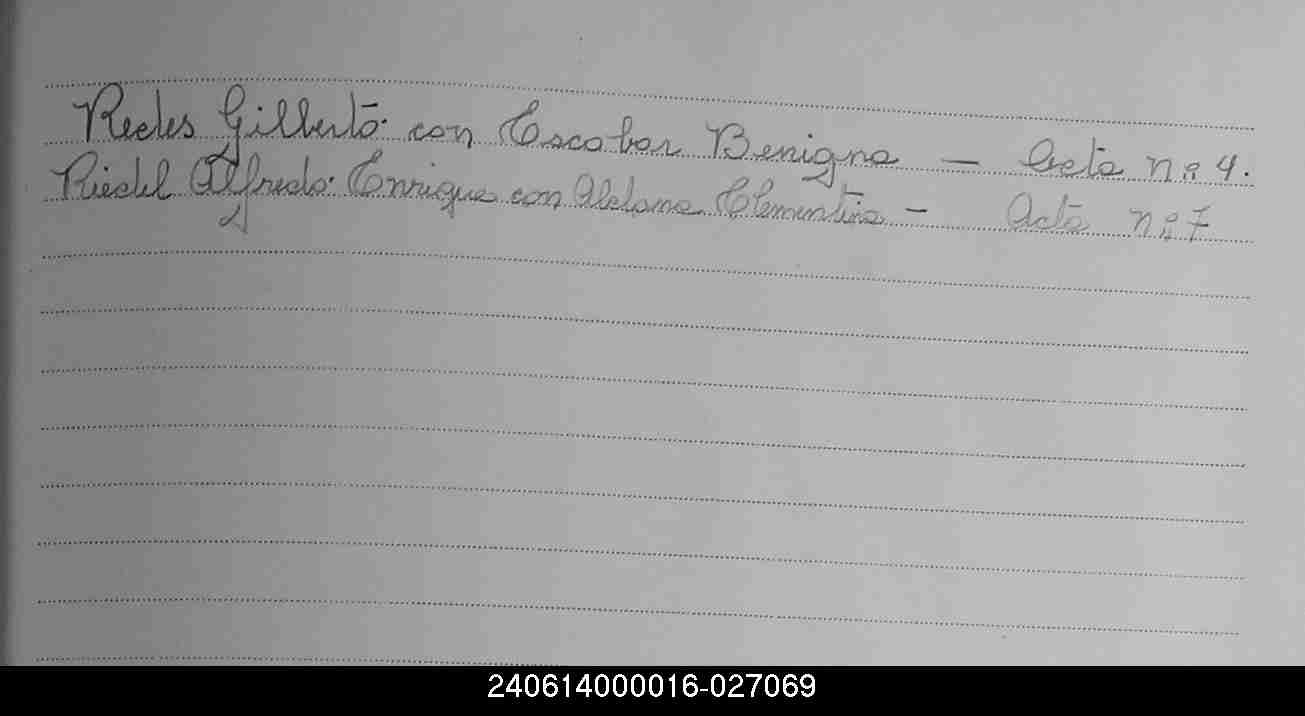 Redes Gilberto con Escobar Benigna — Acta nº 4.
Riedel Alfredo Enrique con Aldana Clementina — Acta nº 7
240614000016-027069